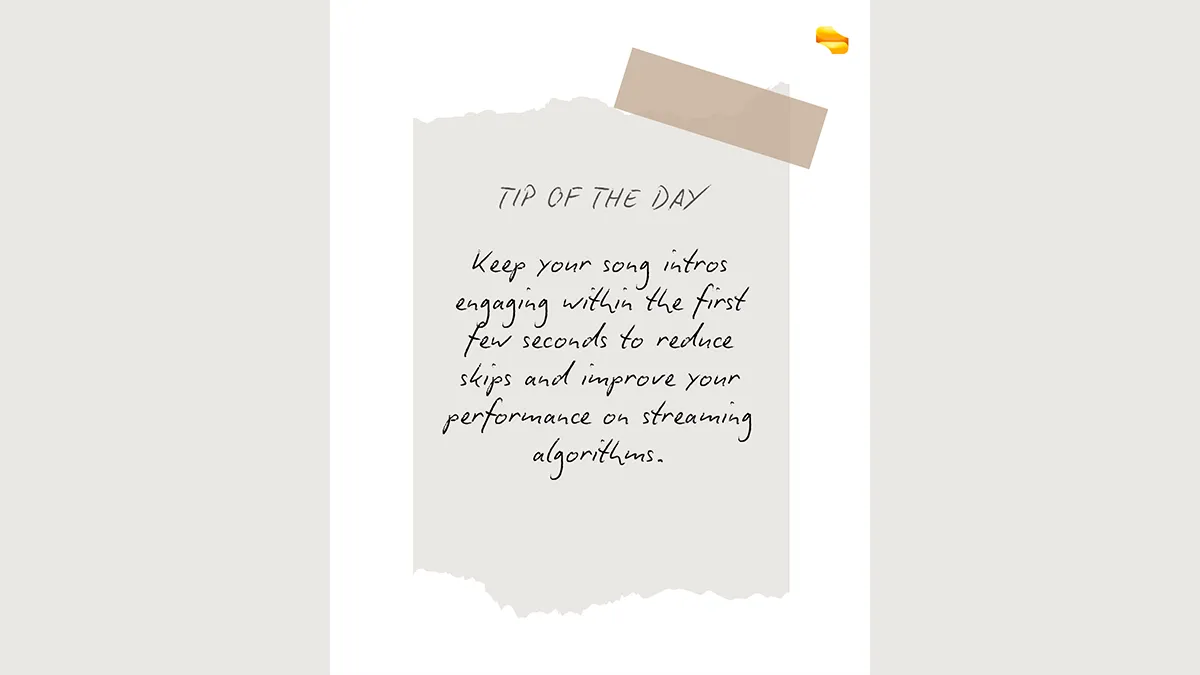 TIP OF THE DAY
Keep your song intros
engaging within the first
few seconds to reduce
skips and improve your
performance on streaming
algorithms.